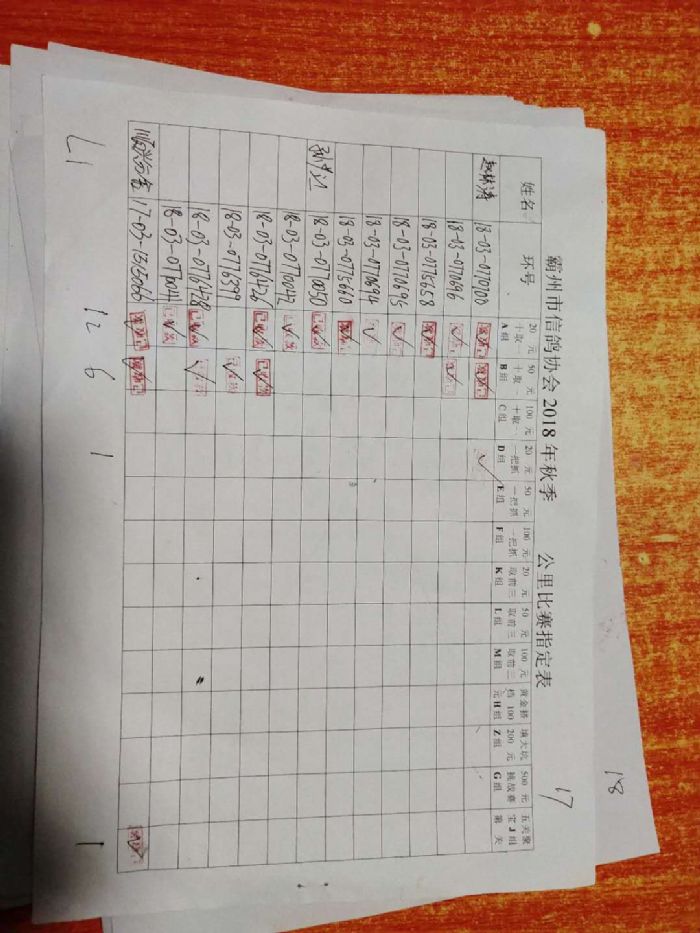 霸州市信鸽协会 2018 年秋季 公里比赛指定表
17
18
姓名 环号 20 元 十取一 A 组 50 元 十取一 B 组 100 元 十取一 C 组 20 元 一把抓 D 组 50 元 一把抓 E 组 100 元 一把抓 F 组 20 元 取前三 K 组 50 元 取前三 L 组 100 元 取前三 M 组 黄金搭档 100 元 H 组 填大坑 200 元 Z 组 500 元 挑战赛 G 组 五关聚宝 J 组 第 关
18-03-0770700
18-03-0770696
18-03-0775658
18-03-0770695
18-03-0770694
18-03-0775660
18-03-0770050
18-03-0770042
18-03-0776426
18-03-0776399
18-03-0776428
18-03-0770041
17-03-1515066
12 6 1 1